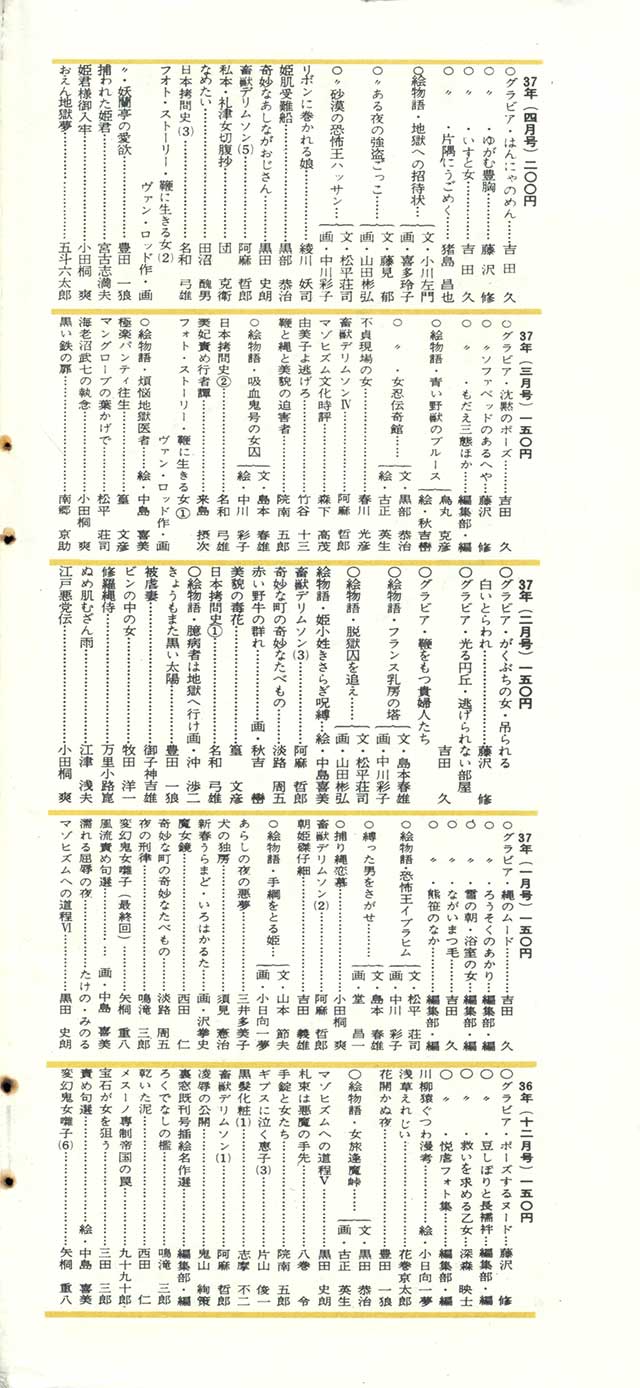 37年(四月号)二〇〇円
〇グラビア・はんにゃのめん…吉田 久
〇 〃 ・ゆがむ豊胸………藤沢 修
〇 〃 ・いすと女…………吉田 久
〇 〃 ・片隅にうごめく…猪島 昌也
〇絵物語・地獄への招待状…{文・小川左門 画・喜多玲子
〇〃・ある夜の強盗ごっこ…{文・藤見 郁 画・山田彬弘
〇〃・砂漠の恐怖王ハッサン…{文・松平荘司 画・中川彩子
リボンに巻かれる娘…………綾川 妖司
姫肌受難船……………………黒部 恭治
奇妙なあしながおじさん……黒田 史朗
畜獣デリムソン(5)…………阿麻 哲郎
私本・礼津女切腹抄…………団 克衛
なめたい………………………田沼 醜男
日本拷問史(3)………………名和 弓雄
フォト・ストーリー・鞭に生きる女(2)
ヴァン・ロッド作・画
〃・妖蘭亭の愛欲……………豊田 一狼
捕われた姫君…………………宮古志満夫
姫君様御入牢…………………小田桐 爽
おえん地獄夢…………………五斗六太郎
37年(三月号)一五〇円
〇グラビア・沈黙のポーズ…吉田 久
〇 〃 ソファベッドのあるへや…藤沢 修
〇 〃 ・もだえ三態ほか…編集部・編
〇絵物語・青い野獣のブルース{烏丸 克彦 絵・秋吉巒
〇 〃 ・女忍伝奇館…{文・黒部 恭治 絵・古正 英生
不貞現場の女…………………春川 光彦
畜獣デリムソンⅣ……………阿麻 哲郎
マゾヒズム文化時評…………森下 高茂
由美子よ逃げろ………………竹谷 十三
鞭と縄と美貌の迫害者………院南 五郎
〇絵物語・吸血鬼号の女囚{文・島本 春雄 絵・中川 彩子
日本拷問史②…………………名和 弓雄
美妃責め行者譚………………来島 摂次
フォト・ストーリー・鞭に生きる女①
ヴァン・ロッド作・画
〇絵物語・煩悩地獄医者……絵・中島 喜美
極楽パンティ往生……………篁 文彦
マングローブの葉かげで……松平 荘司
海老沼武七の執念……………小田桐 爽
黒い鉄の扉……………………南郷 京助
37年(二月号)一五〇円
〇グラビア・がくぶちの女・吊られる
白いとらわれ…………………藤沢 修
〇グラビア・光る円丘・逃げられない部屋
吉田 久
〇グラビア・鞭をもつ貴婦人たち
〇絵物語・フランス乳房の塔{文・島本春雄 画・中川彩子
〇絵物語・脱獄囚を追え……{文・松平荘司 画・山田彬弘
絵物語・姫小姓きさらぎ呪縛…絵・中島喜美
畜獣デリムソン(3)…………阿麻 哲郎
奇妙な町の奇妙なたべもの…淡路 周五
赤い野牛の群れ………………画・秋吉 巒
美貌の毒花……………………篁 文彦
日本拷問史①…………………名和 弓雄
〇絵物語・臆病者は地獄へ行け画・沖 渉二
きょうもまた黒い太陽………豊田 一狼
被虐妻…………………………御子神吉雄
ビンの中の女…………………牧田 洋一
修羅縄侍………………………万里小路崑
ぬめ肌むざん雨………………江津 浅夫
江戸悪党伝……………………小田桐 爽
37年(一月号)一五〇円
〇グラビア・縄のムード……吉田 久
〇 〃 ・ろうそくのあかり…編集部・編
〇 〃 ・雪の朝・浴室の女…編集部・編
〇 〃 ・ながいまつ毛………吉田 久
〇 〃 ・熊笹のなか…………編集部・編
〇絵物語・恐怖王イブラヒム{文・松平 荘司 画・中川 彩子
〇縛った男をさがせ…………{文・島本 春雄 画・堂 昌一
〇捕り縄恋墓…………………小田桐 爽
畜獣デリムソン(2)…………阿麻 哲郎
朝姫磔仔細……………………吉田 義雄
〇絵物語・手綱をとる姫……{文・山本 節夫 画・小日向一夢
あらしの夜の悪夢……………三井多美子
犬の独房………………………須見 憲治
新春うらまど・いろはかるた…画・沢挙史
魔女鏡…………………………西田 仁
奇妙な町の奇妙なたべもの…淡路 周五
夜の刑律………………………鳴滝 三郎
変幻鬼女囃子(最終回)………矢桐 重八
風流責め句選…………………画・中島 喜美
濡れる屈辱の夜………………たけの・みのる
マゾヒズムへの道程Ⅵ………黒田 史朗
36年(十二月号)一五〇円
〇グラビア・ポーズするヌード…藤沢 修
〇 〃 ・豆しぼりと長襦袢…編集部・編
〇 〃 ・救いを求める乙女…深森 映士
〇 〃 ・悦虐フォト集………編集部・編
川柳猿ぐつわ漫考……………絵・小日向一夢
浅草えれじい…………………花巻京太郎
花開かぬ夜……………………豊田 一狼
〇絵物語・女旅逢魔峠………{文・黒田 恭治 画・古正 英生
マゾヒズムへの道程Ⅴ………黒田 史朗
札束は悪魔の手先……………八巻 令
手錠と女たち…………………院南 五郎
ギプスに泣く恵子(3)………片山 俊一
黒髪化粧(1)…………………志摩 不二
畜獣デリムソン(1)…………阿麻 哲郎
凌辱の公開……………………鬼山 絢策
裏窓既刊号挿絵名作選………編集部・編
ろくでなしの檻………………鳴滝 三郎
乾いた泥………………………西田 仁
メスーノ専制帝国の罠………九十九十郎
宝石が女を狙う………………三田 三郎
責め句選………………………絵・中島 喜美
変幻鬼女囃子(6)……………矢桐 重八